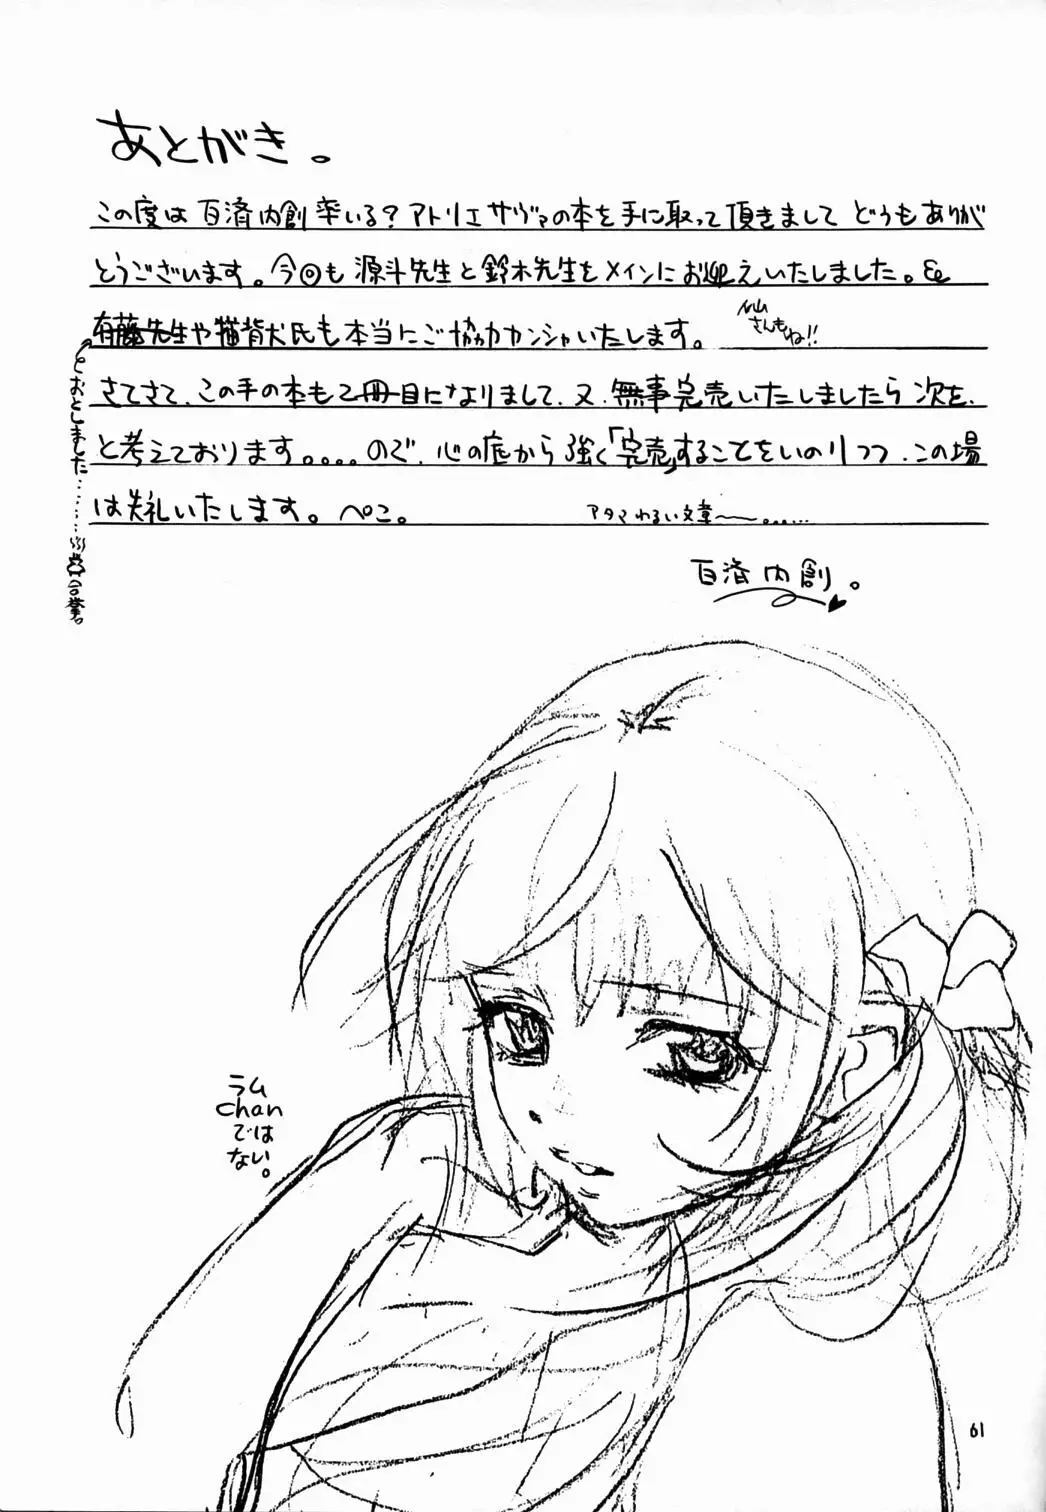 あとがき。
この度は百済内創率いる?アトリエサヴァの本を手に取って頂きましてどうもありが
とうございます。今回も源斗先生と鈴木先生をメインにお迎えいたしました。
有藤先生や猫背犬氏も本当にご協力カンシャいたします。
さんもね!!
さてさて、この手の本も2冊目になりまして、又、無事完売いたしましたら次を、
と考えております。。。。ので、心の底から強く「完売」することをいのりつつ、この場
は失礼いたします。ぺこ。
アタマわるい文章〜〜。……
おとしました……
合掌。
百済内創。
ラム
chan
では
ない。
61